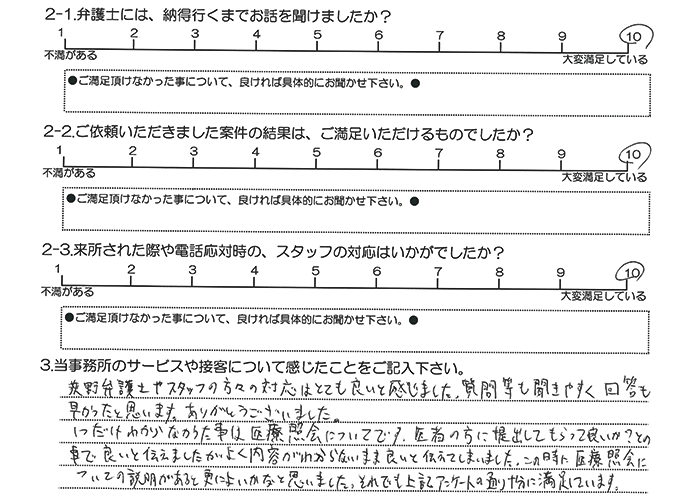 2-1.弁護士には、納得行くまでお話を聞けましたか？
1 2 3 4 5 6 7 8 9 10
不満がある 大変満足している
●ご満足頂けなかった事について、良ければ具体的にお聞かせ下さい。●
2-2.ご依頼いただきました案件の結果は、ご満足いただけるものでしたか？
1 2 3 4 5 6 7 8 9 10
不満がある 大変満足している
●ご満足頂けなかった事について、良ければ具体的にお聞かせ下さい。●
2-3.来所された際や電話応対時の、スタッフの対応はいかがでしたか？
1 2 3 4 5 6 7 8 9 10
不満がある 大変満足している
●ご満足頂けなかった事について、良ければ具体的にお聞かせ下さい。●
3.当事務所のサービスや接客について感じたことをご記入下さい。
弁護士やスタッフの方々の対応はとても良いと感じました。質問等も聞きやすく回答も
早かったと思います。ありがとうございました。
1つだけわからなかった事は医療照会についてです。医者の方に提出してもらって良いか？との
事で良いと伝えましたがよく内容がわからないまま良いと伝えてしまいました。この時に医療照会に
ついての説明があると更によいかなと思いました。それでも上記アンケートの通り十分に満足しています。